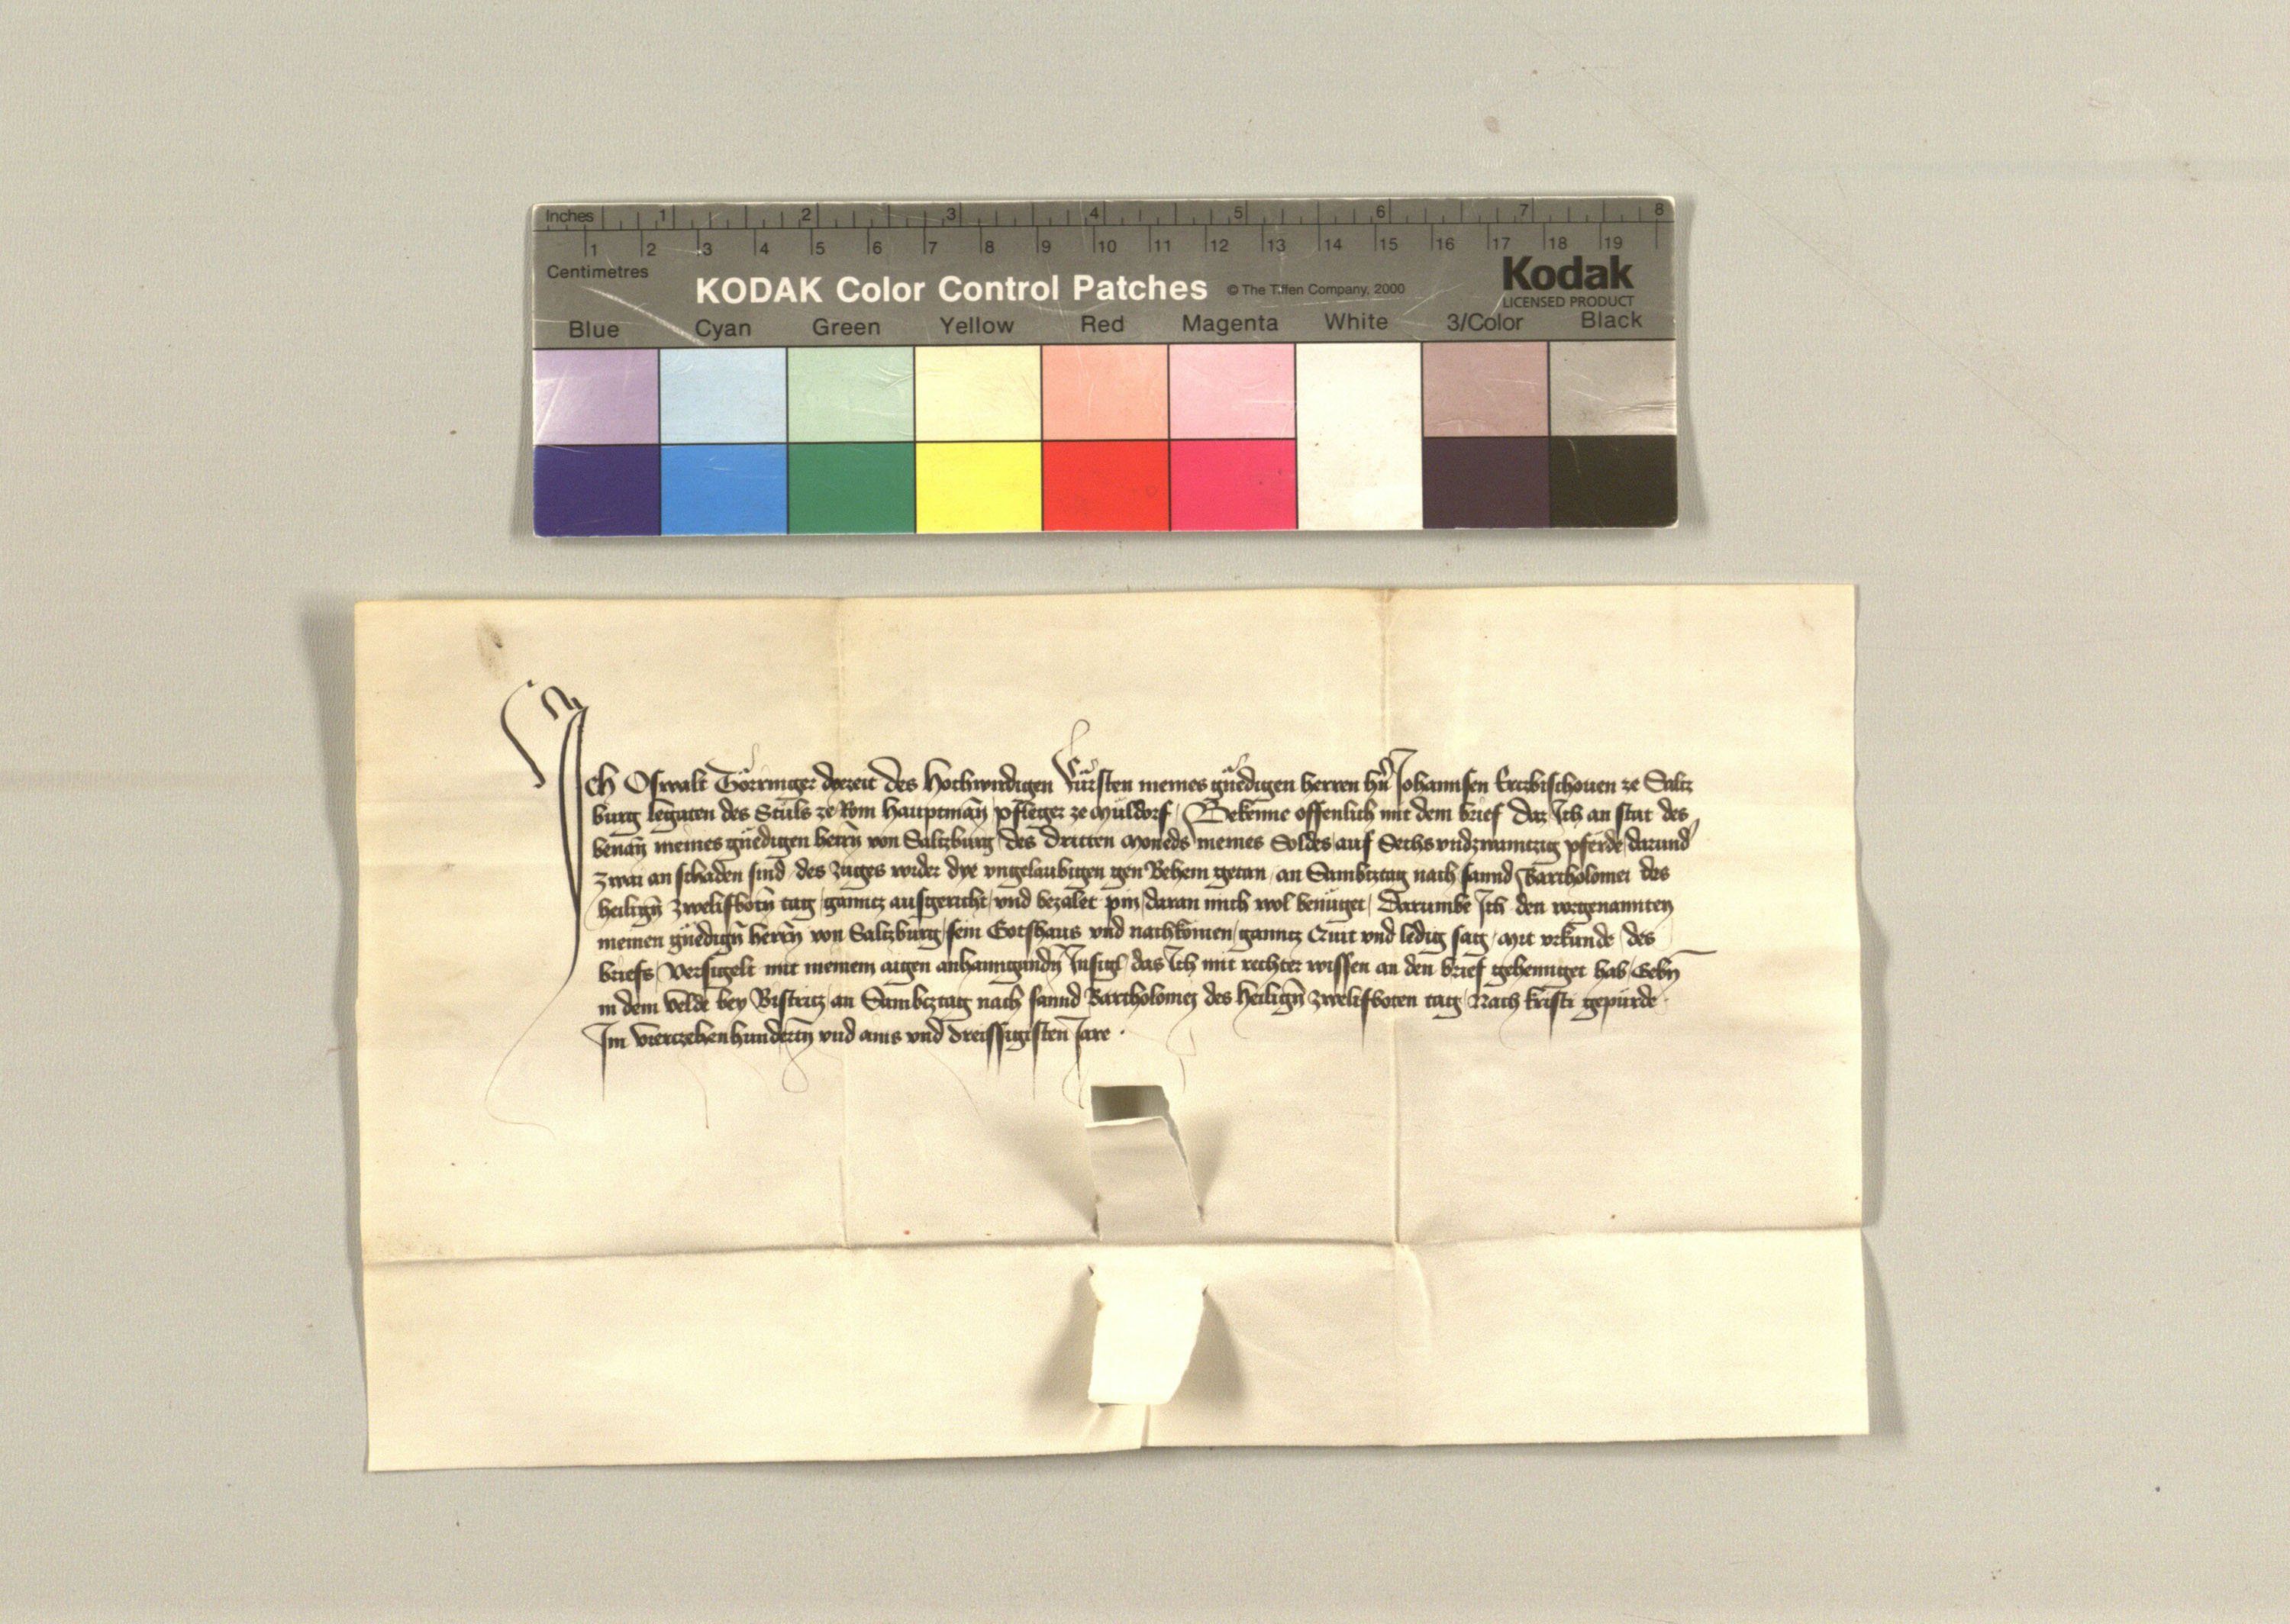 Inches 1 2 3 4 5 6 7 8
1 2 3 4 5 6 7 8 9 10 11 12 13 14 15 16 17 18 19
Centimetres
KODAK Color Control Patches © The Tiffen Company, 2000 Kodak
LICENSED PRODUCT
Blue Cyan Green Yellow Red Magenta White 3/Color Black
Ich Oswalt Törringer derzeit des Hochwirdigen Fürsten meines gnedigen herren hern Johannsen Erczbischouen ze Salcz
burg legaten des Stuls ze Rom Hauptman pfleger ze Müldorf Bekenne offenlich mit dem brief Daz Ich an stat des
benan meines gnedigen herrn von Salczburg des dritten Moneds meines Soldes auf Sechsvndzwainczig pferde darund
zwai an schaden sind des zuges wider dye vngelaubigen gen Behem getan an Sambcztag nach sannd Bartholomei des
heilign zwelifbotn tag ganncz ausgericht vnd bezalet pin daran mich wol benüget Darumbe Ich den vorgenannten
meinen gnedign herrn von Salczburg sein Gotshaus vnd nachkomen ganncz Quit vnd ledig sag Mit vrkunde des
briefs Versigelt mit meinem aigen anhanngundn Insigl das Ich mit rechter wissen an den brief gehennget hab Gebn
in dem velde bey Bistricz an Sambcztag nach sannd Bartholomei des heilign zwelifboten tag Nach kristi gepürde
Im vierczehenhundertn vnd ains vnd dreissigisten Jare